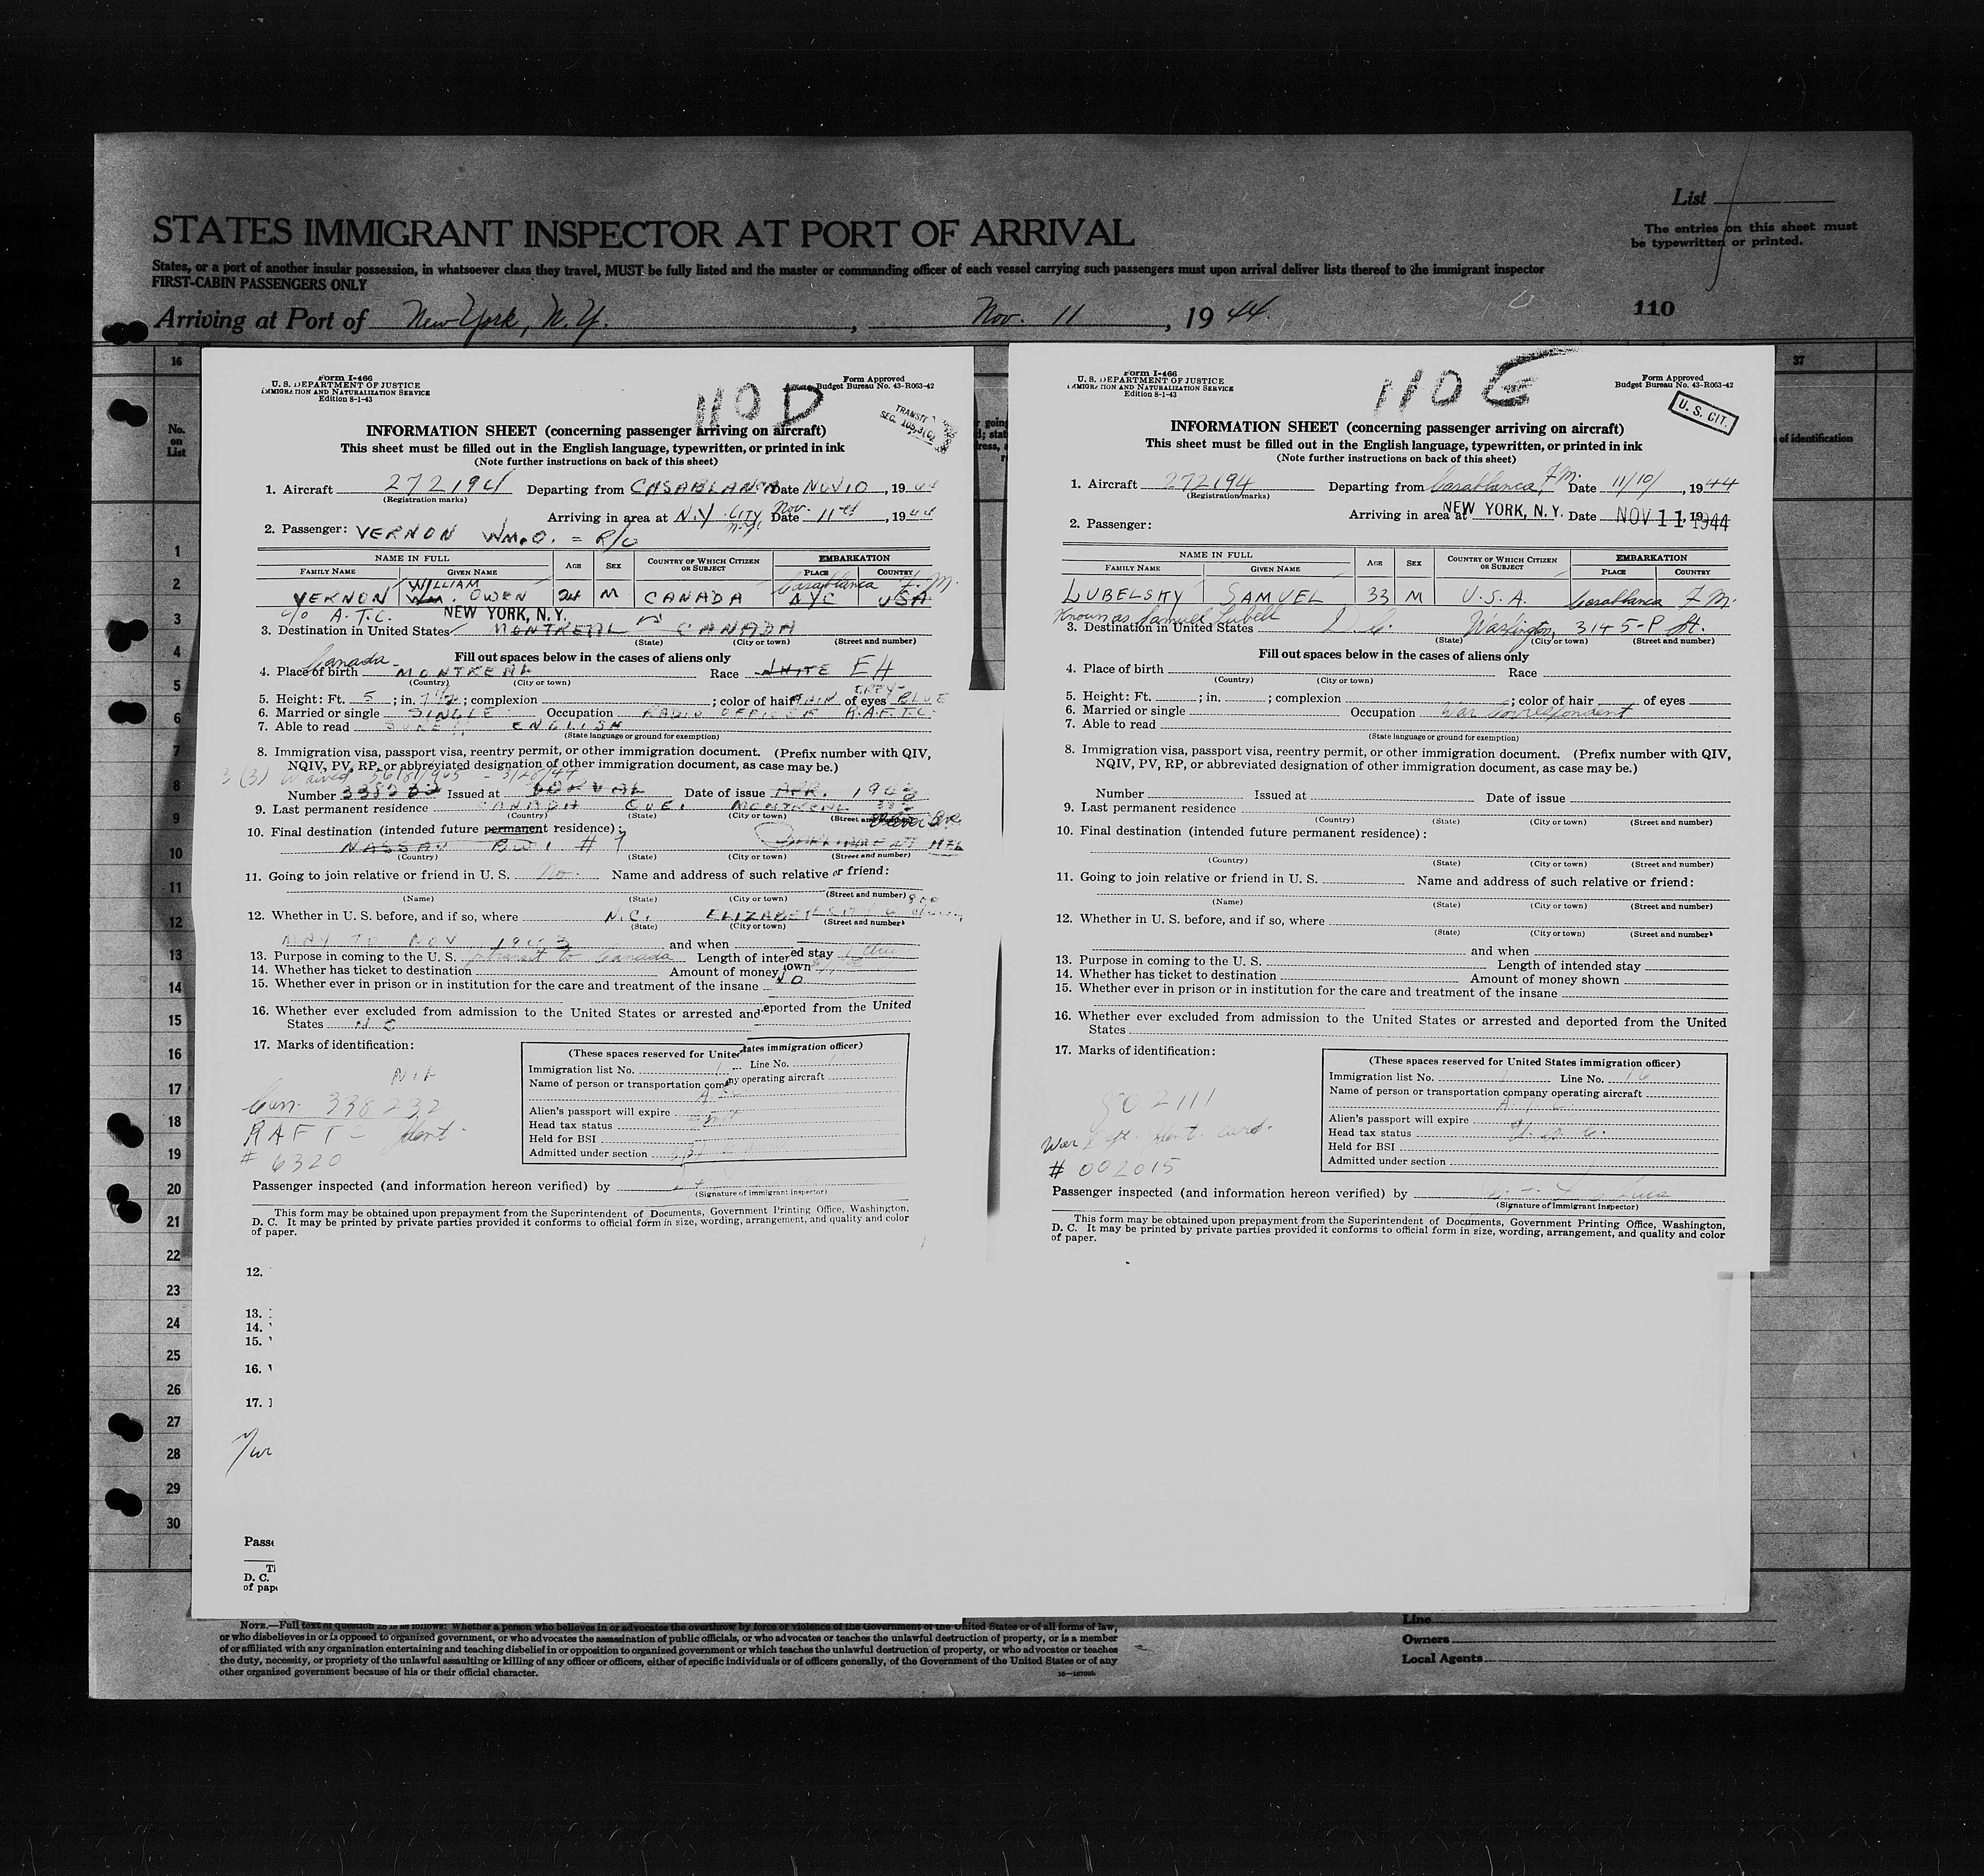 List
The entries on this sheet must
be typewritten or printed.
STATES IMMIGRANT INSPECTOR AT PORT OF ARRIVAL
States, or a port of another insular possession, in whatsoever class they travel, MUST be fully listed and the master or commanding officer of each vessel carrying such passengers must upon arrival deliver lists thereof to the immigrant inspector
FIRST-CABIN PASSENGERS ONLY
Arriving at Port of New York, N.Y., Nov. 11, 1944
110
16
37
No.
on
List
of identification
1
2
3
4
5
6
7
8
9
10
11
12
13
14
15
16
17
18
19
20
21
22
23
24
25
26
27
28
29
30
Form I-466
U. S. DEPARTMENT OF JUSTICE
IMMIGRATION AND NATURALIZATION SERVICE
Edition 8-1-43
110 D
Form Approved
Budget Bureau No. 43-R063-42
TRANSIT
SEC. 105.3(C)
INFORMATION SHEET (concerning passenger arriving on aircraft)
This sheet must be filled out in the English language, typewritten, or printed in ink
(Note further instructions on back of this sheet)
1. Aircraft 272194 Departing from CASABLANCA Date NOV 10, 1944
(Registration marks)
Arriving in area at N.Y. CITY N.Y. Date Nov. 11th, 1944
2. Passenger: VERNON WM. O. = R/O
NAME IN FULL AGE SEX COUNTRY OF WHICH CITIZEN OR SUBJECT EMBARKATION
FAMILY NAME GIVEN NAME PLACE COUNTRY
WILLIAM Casablanca F.M.
VERNON WM. OWEN 24 M CANADA NYC USA
c/o A.T.C. NEW YORK, N.Y.
3. Destination in United States MONTREAL CANADA
(State) (City or town) (Street and number)
Fill out spaces below in the cases of aliens only
Canada
4. Place of birth MONTREAL Race WHITE EH
(Country) (City or town)
5. Height: Ft. 5; in. 7½; complexion ; color of hair FAIR of eyes GREY-BLUE
6. Married or single SINGLE Occupation RADIO OFFICER R.A.F.T.C.
7. Able to read ENGLISH
(State language or ground for exemption)
8. Immigration visa, passport visa, reentry permit, or other immigration document. (Prefix number with QIV,
NQIV, PV, RP, or abbreviated designation of other immigration document, as case may be.)
3 (3) Waived
Number 338232 Issued at DORVAL Date of issue APR. 1943
9. Last permanent residence CANADA QUE. MONTREAL
(Country) (State) (City or town) (Street and number)
10. Final destination (intended future permanent residence):
NASSAU B.W.I. # 9
(Country) (State) (City or town) (Street and number)
11. Going to join relative or friend in U. S. No. Name and address of such relative or friend:
(Name) (State) (City or town) (Street and number)
12. Whether in U. S. before, and if so, where N.C. ELIZABETH CITY
(State) (City or town) (Street and number)
MAY TO NOV 1943 and when
13. Purpose in coming to the U. S. transit to Canada Length of intended stay
14. Whether has ticket to destination Amount of money shown
15. Whether ever in prison or in institution for the care and treatment of the insane NO
16. Whether ever excluded from admission to the United States or arrested and deported from the United
States NO
17. Marks of identification:
NIL
Can. 338232
RAFTC Ident.
# 6320
(These spaces reserved for United States immigration officer)
Immigration list No. 1 Line No. 1
Name of person or transportation company operating aircraft
Alien's passport will expire
Head tax status
Held for BSI
Admitted under section
Passenger inspected (and information hereon verified) by
(Signature of immigrant inspector)
This form may be obtained upon prepayment from the Superintendent of Documents, Government Printing Office, Washington,
D. C. It may be printed by private parties provided it conforms to official form in size, wording, arrangement, and quality and color
of paper.
12.
13.
14.
15.
16.
17.
D. C.
Form I-466
U. S. DEPARTMENT OF JUSTICE
IMMIGRATION AND NATURALIZATION SERVICE
Edition 8-1-43
110 E
Form Approved
Budget Bureau No. 43-R063-42
U. S. CIT.
INFORMATION SHEET (concerning passenger arriving on aircraft)
This sheet must be filled out in the English language, typewritten, or printed in ink
(Note further instructions on back of this sheet)
1. Aircraft 272194 Departing from Casablanca, F.M. Date 11/10/, 1944
(Registration marks)
Arriving in area at NEW YORK, N.Y. Date NOV 11 1944
2. Passenger:
NAME IN FULL AGE SEX COUNTRY OF WHICH CITIZEN OR SUBJECT EMBARKATION
FAMILY NAME GIVEN NAME PLACE COUNTRY
LUBELSKY SAMUEL 33 M U.S.A. Casablanca F.M.
Known as Samuel Lubell
3. Destination in United States D.C. Washington, 3145-P St.
(State) (City or town) (Street and number)
Fill out spaces below in the cases of aliens only
4. Place of birth Race
(Country) (City or town)
5. Height: Ft. ; in. ; complexion ; color of hair of eyes
6. Married or single Occupation War Correspondent
7. Able to read
(State language or ground for exemption)
8. Immigration visa, passport visa, reentry permit, or other immigration document. (Prefix number with QIV,
NQIV, PV, RP, or abbreviated designation of other immigration document, as case may be.)
Number Issued at Date of issue
9. Last permanent residence
(Country) (State) (City or town) (Street and number)
10. Final destination (intended future permanent residence):
(Country) (State) (City or town) (Street and number)
11. Going to join relative or friend in U. S. Name and address of such relative or friend:
(Name) (State) (City or town) (Street and number)
12. Whether in U. S. before, and if so, where
(State) (City or town) (Street and number)
and when
13. Purpose in coming to the U. S. Length of intended stay
14. Whether has ticket to destination Amount of money shown
15. Whether ever in prison or in institution for the care and treatment of the insane
16. Whether ever excluded from admission to the United States or arrested and deported from the United
States
17. Marks of identification:
War Dept. Ident. card.
# 002015
(These spaces reserved for United States immigration officer)
Immigration list No. 1 Line No.
Name of person or transportation company operating aircraft
A.T.C.
Alien's passport will expire
Head tax status U.S.C.
Held for BSI
Admitted under section
Passenger inspected (and information hereon verified) by
(Signature of immigrant inspector)
This form may be obtained upon prepayment from the Superintendent of Documents, Government Printing Office, Washington,
D. C. It may be printed by private parties provided it conforms to official form in size, wording, arrangement, and quality and color
of paper.
NOTE.—Full text of question 28 is as follows: Whether a person who believes in or advocates the overthrow by force or violence of the Government of the United States or of all forms of law,
or who disbelieves in or is opposed to organized government, or who advocates the assassination of public officials, or who advocates or teaches the unlawful destruction of property, or is a member
of or affiliated with any organization entertaining and teaching disbelief in or opposition to organized government or which teaches the unlawful destruction of property, or who advocates or teaches
the duty, necessity, or propriety of the unlawful assaulting or killing of any officer or officers, either of specific individuals or of officers generally, of the Government of the United States or of any
other organized government because of his or their official character.
Line
Owners
Local Agents